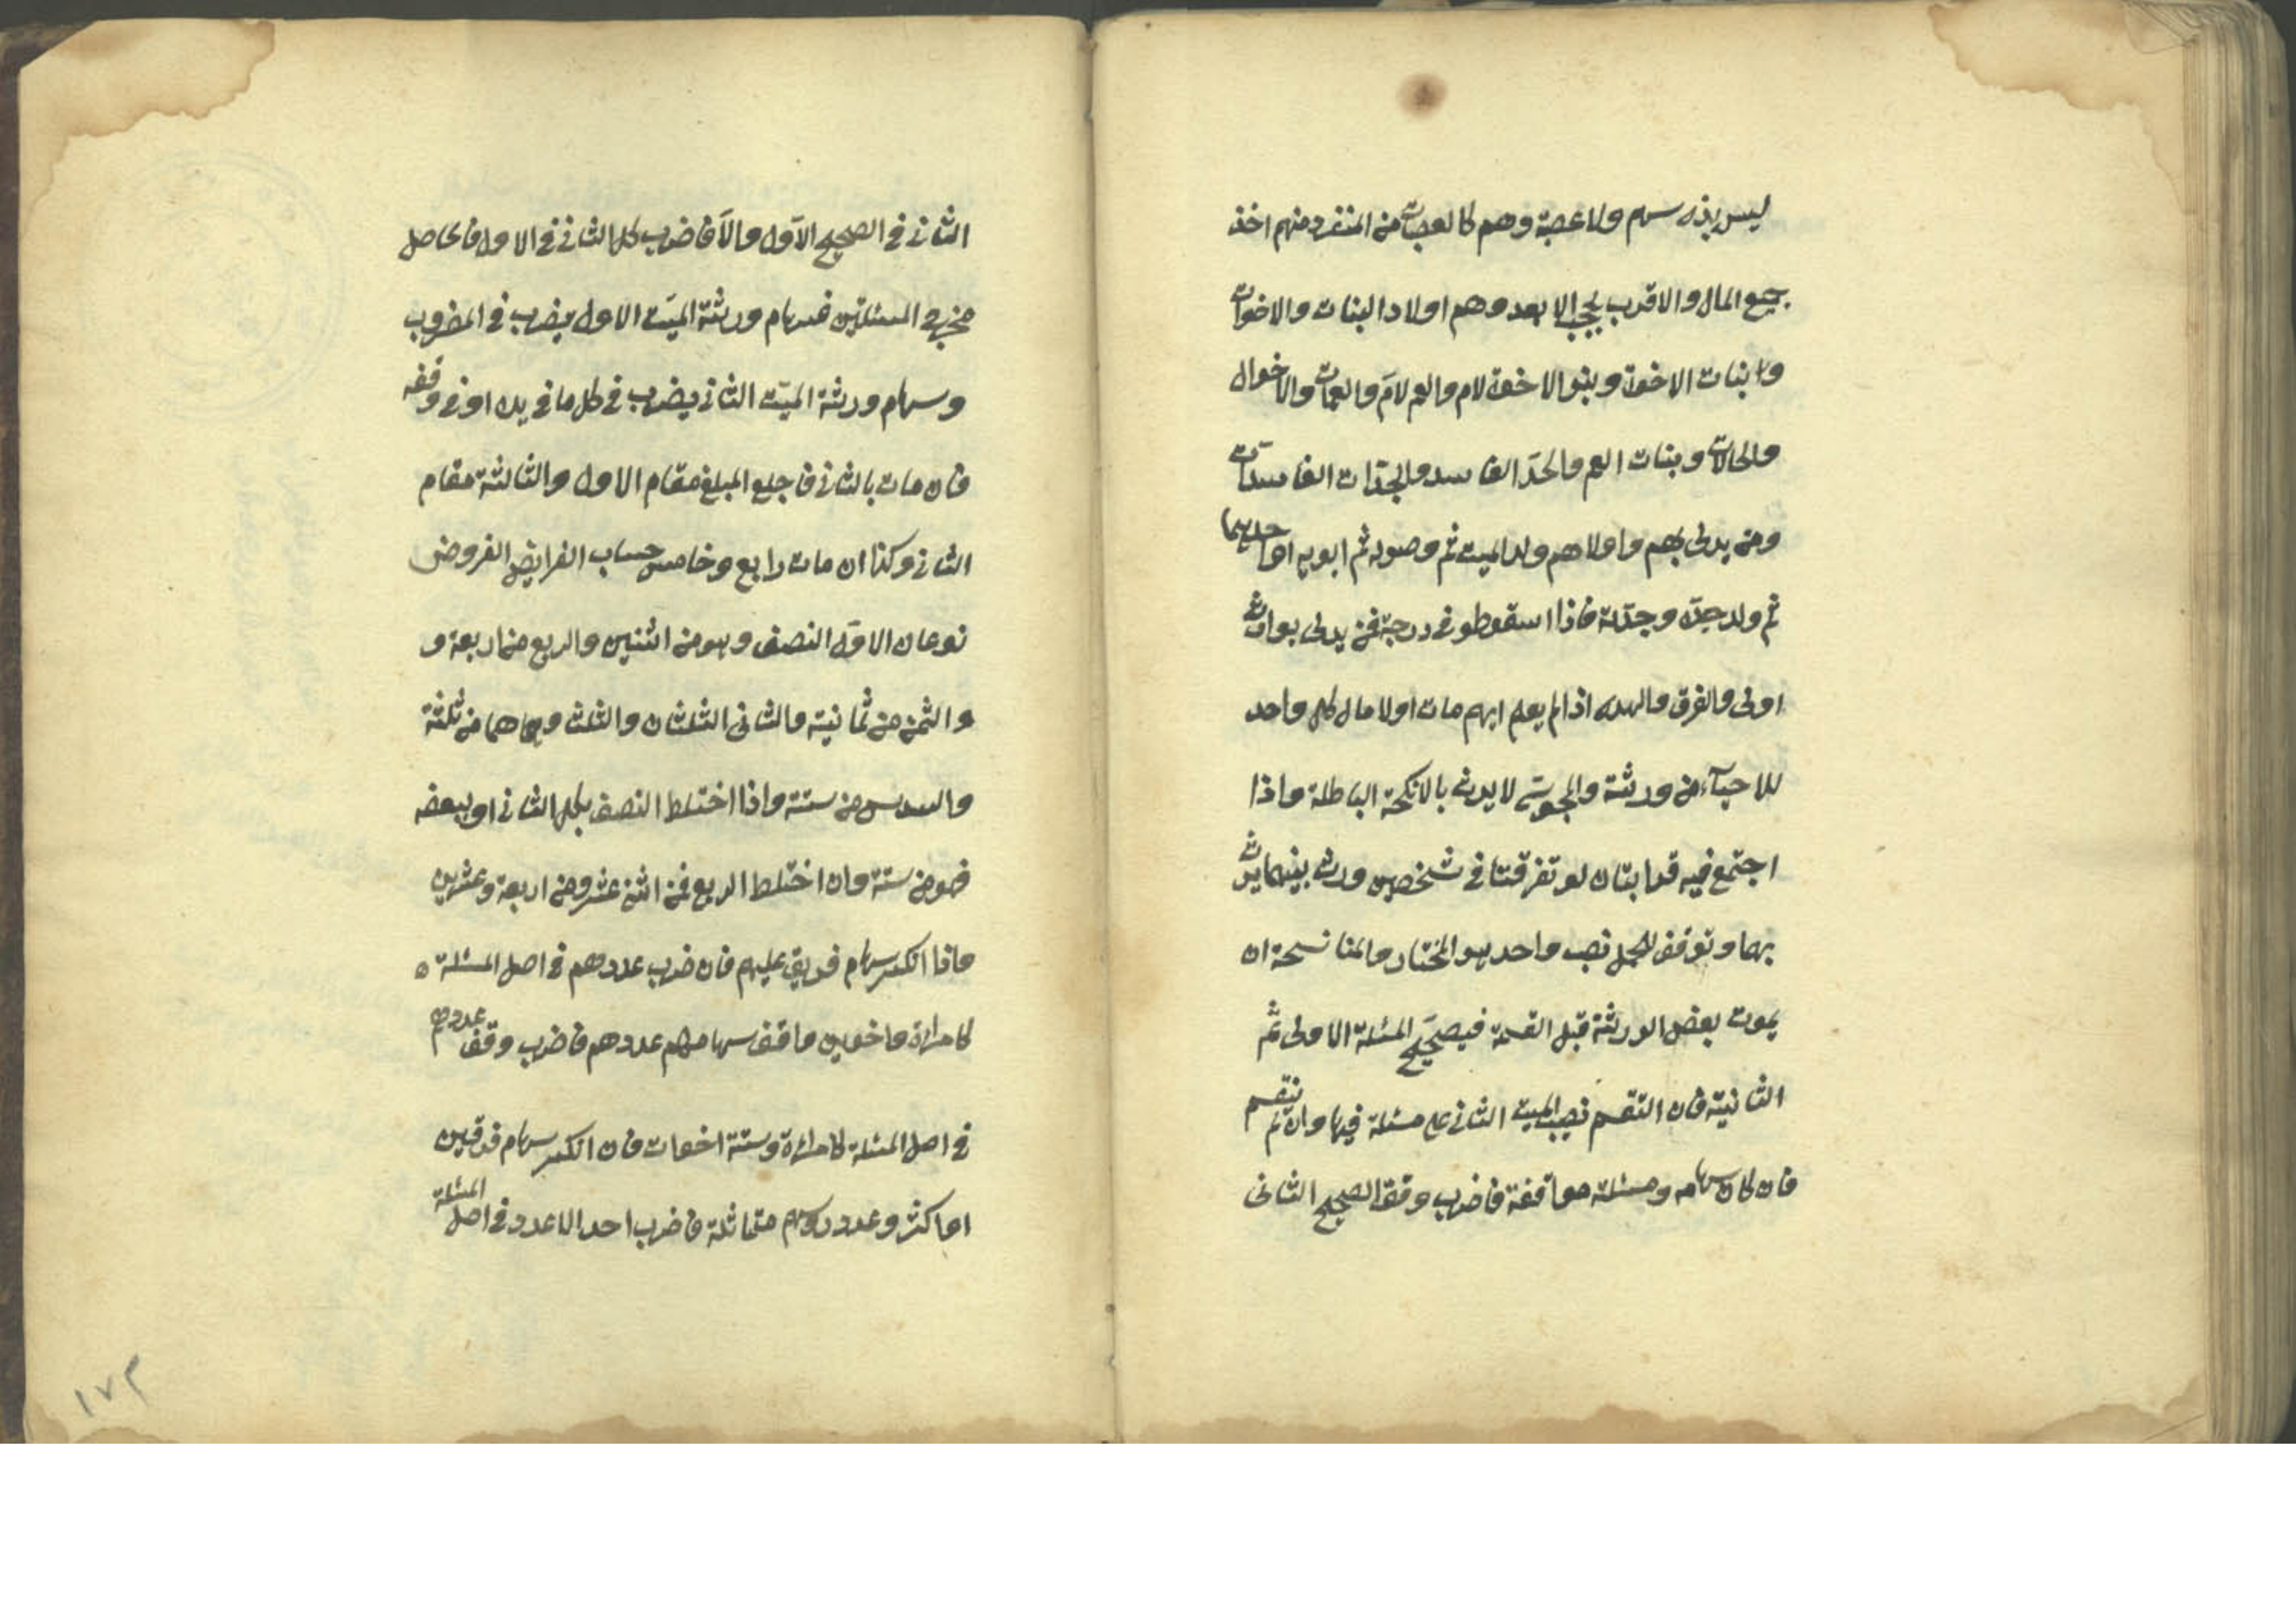 ليس بذي سهم ولا عصبة وهم كالعصبات من المنفرد منهم اخذ
جميع المال والاقرب يحجب الابعد وهم اولاد البنات والاخوات
وبنات الاخوة وبنو الاخوة لام والعم لام والعمات والاخوال
والخالات وبنات العم والجد الفاسد والجدات الفاسدات
ومن يدلى بهم واولاهم ولد الميت ثم وصوله ثم ابويه او احديهما
ثم ولد جده وجدته فاذا اسقوطو فى درجة فمن يدلى بوارث
اولى والغرق والهدم اذا لم يعلم ايهم مات اولا مال كل واحد
للاحياء من ورثة والمجوسى لا يرث بالانكحة الباطلة واذا
اجتمع فيه قرابتان لو تفرقتا فى شخصين ورث بينهما يرث
بهما وتوقف للحمل نصيب واحد هو المختار والمناسخة ان
يموت بعض الورثة قبل القسمة فيصحح المسئلة الاولى ثم
الثانية فان انقسم نصيب الميت الثانى على مسئلة فبها وان لم ينقسم
فان كان سهامه ومسئلته موافقة فاضرب وفق الصحيح الثانى
الثانى فى الصحيح الاول والا فاضرب كل الثانى فى الاول فالحاصل
مخرج المسئلتين فسهام ورثة الميت الاول يضرب فى المضروب
وسهام ورثة الميت الثانى يضرب فى كل ما فى يده او فى وفقه
فان مات بالثانى فاجلع المبلغ مقام الاول والثالثة مقام
الثانى وكذا ان مات رابع وخامس حساب الفرايض الفروض
نوعان الاول النصف وهو من اثنين والربع من اربعة و
والثمن من ثمانية والثانى الثلثان والثلث وهما من ثلثة
والسدس من ستة واذا اختلط النصف بكل الثانى او ببعضه
فهو من ستة وان اختلط الربع فمن اثنى عشر ومن اربعة وعشرين
واذا انكسر سهام فريق عليهم فان ضرب عددهم فى اصل المسئلة ه
كامراة واخوين وافق سهامهم عددهم فاضرب وفق عددهم
فى اصل المسئلة كامراة وستة اخوات فان انكسر سهام فرقين
او اكثر وعدد روسهم متماثلة فاضرب احد الاعدد فى اصل المسئلة
١٧٣